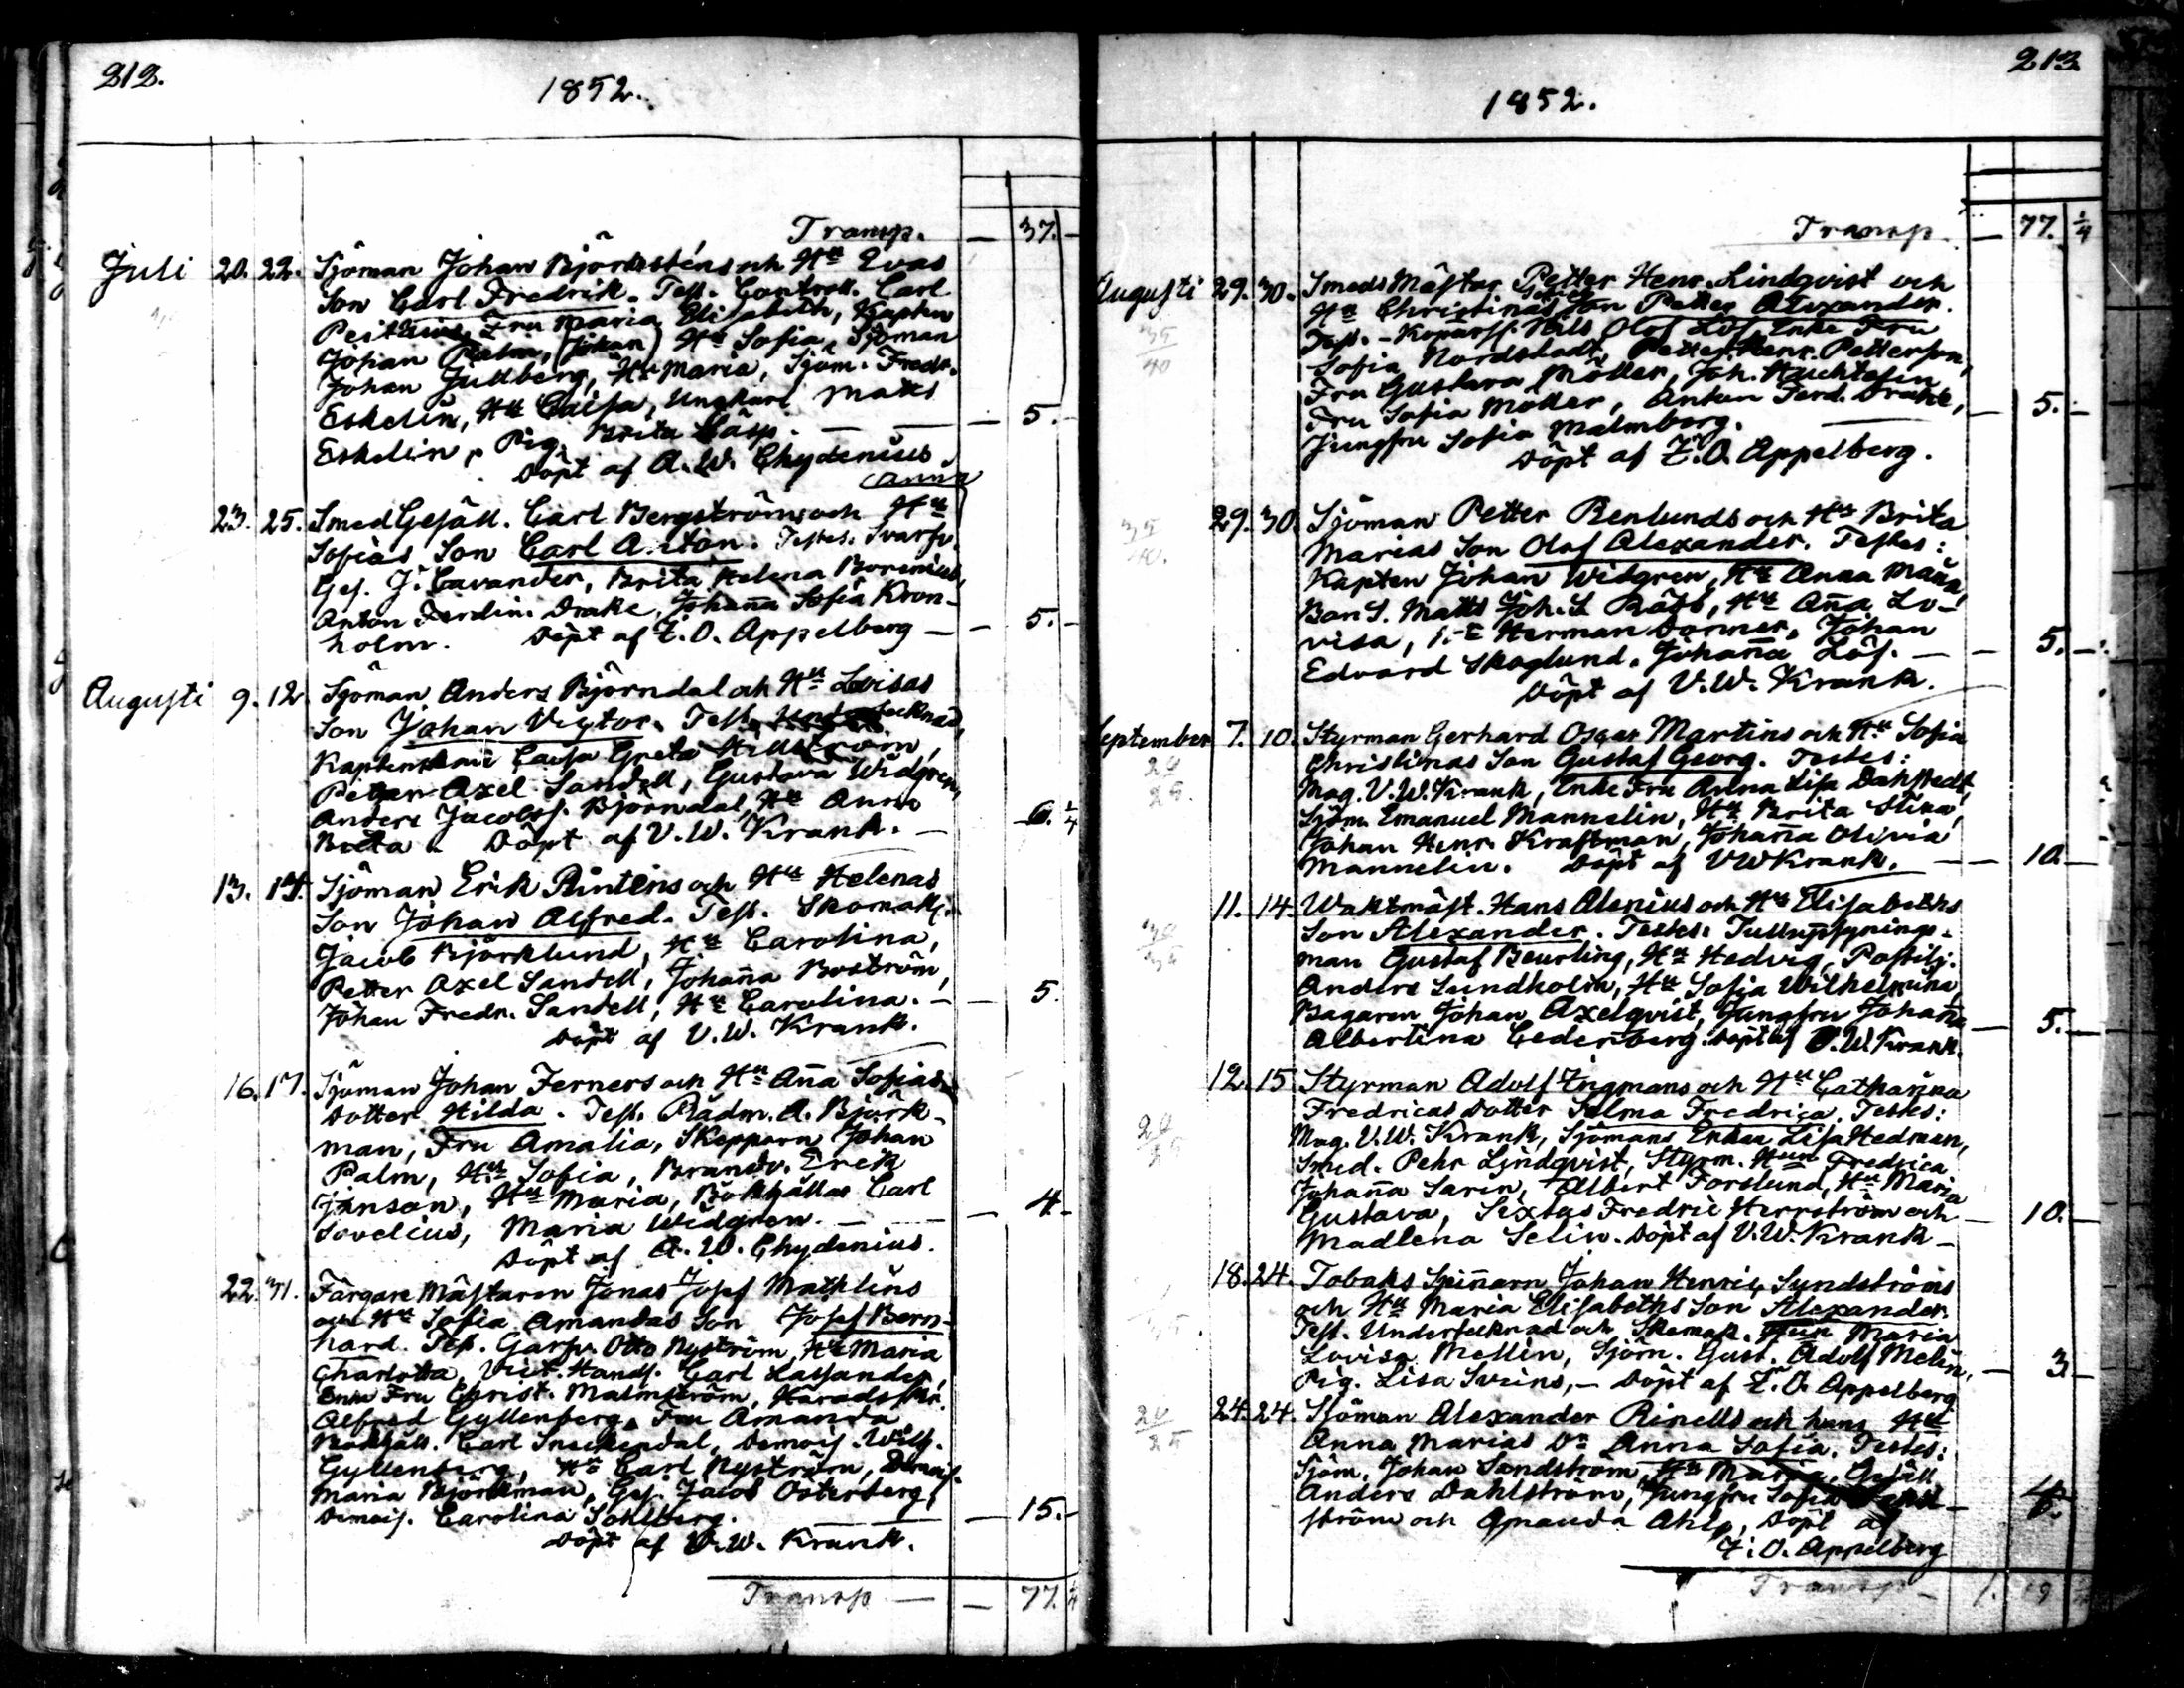 212.
1852.
Transp. — 37. —
Juli 20. 22. Sjöman Johan Björksténs och Hu Evas
Son Carl Fredrik. Test. Controll. Carl
Fru Maria Elisabeth, Kapten
Johan Palm, (Johan) Hu Sofia, Sjöman
Johan Gullberg, Hu Maria, Sjöm. Fredr.
Eskelin, Hu Caisa, Ungkarl Matts
Eskelin, Pig. Brita — — 5. —
Döpt af A. W. Chydenius
Anna
23. 25. Smed Gesäll. Carl Bergströms och Hu
Sofias Son Carl Anton. Testes. Svarfv.
Ges. J. Cavander, Brita Helena Borenius,
Anton Ferdin. Drake, Johanna Sofia Kron-
holm. Döpt af Z. O. Appelberg — — 5. —
Augusti 9. 12 Sjöman Anders Björndal och Hu Lovisas
Son Johan Victor. Test.
Kaptenskan Caisa Greta Hellström,
Petter Axel Sandell, Gustava Widgren,
Anders Jacobss. Björndal, Hu Anna
Brita. Döpt af V. W. Krank. — 6. 1/4
13. 14. Sjöman Erik Rinténs och Hu Helenas
Son Johan Alfred. Test. Skomak.
Jacob Björklund, Hu Carolina,
Petter Axel Sandell, Johanna Boström,
Johan Fredr. Sandell, Hu Carolina. — — 5.
Döpt af V. W. Krank.
16. 17. Sjöman Johan Ferners och Hu Anna Sofias
Dotter Hilda. Test. Rådm. A. Björk-
man, Fru Amalia, Skepparn Johan
Palm, Hu Sofia, Brandv. Erik
Janson, Hu Maria, Bokhållar Carl
Sovelius, Maria Widgren. — — 4. —
Döpt af A. W. Chydenius.
22. 31. Färgare Mästaren Jonas Josef Mathlins
och Hu Sofia Amandas Son Josef Bern-
hard. Test. Garfv. Otto Nyström, Hu Maria
Charlotta, Vict. Handl. Carl Lassander,
Enke Fru Christ. Malmström, Häradsskr.
Alfred Gyllenberg, Fru Amanda,
Bokhåll. Carl Snickendal, Demois. Wilh.
Gyllenberg, Hr Carl Nyström, Demois.
Maria Björkman, Ges. Jacob Österberg,
Demois. Carolina Sohlberg. — — 15. —
Döpt af V. W. Krank.
Transp — — 77. 1/4
213
1852.
Transp. — 77. 1/4
Augusti 29. 30. Smeds Mästar Petter Henr. Lindqvist och
Hu Christinas Son Petter Alexander.
35/40
Test. - Kopparsl. Nils Olof Löf, Enke Fru
Sofia Nordstadt, Petter Henr. Petterson,
Fru Gustava Möller, Joh.
Fru Sofia Möller, Anton Ferd. Drake, — 5. —
Jungfru Sofia Malmberg.
Döpt af Z. O. Appelberg.
29. 30. Sjöman Petter Renlunds och Hu Brita
35/40.
Marias Son Olof Alexander. Testes:
Kapten Johan Widgren, Hu Anna Maria,
Bon S. Matts Joh. S. Hu Anna Lo-
visa, Herman Donner, Johan
Edvard Skoglund, Johanna Löf. — — 5. —
Döpt af V. W. Krank.
September 7. 10. Styrman Gerhard Oscar Martins och Hu Sofia
Christinas Son Gustaf Georg. Testes:
Mag. V. W. Krank, Enke Fru Anna Lisa Dahlstedt,
Sjöm. Emanuel Mannelin, Hu Brita Stina,
Johan Henr. Kraftman, Johanna Olivia
Mannelin. Döpt af V W Krank. — — 10. —
11. 14. Waktmäst. Hans Alenius och Hu Elisabeths
Son Alexander. Testes: Tulluppsynings-
man Gustaf Beurling, Hu Hedvig, Postilj.
Anders Sundholm, Hu Sofia Wilhelmina,
Bagaren Johan Axelqvist, Jungfru Johanna
Albertina Cederberg. Döpt af V. W. Krank. — 5. —
12. 15 Styrman Adolf Ingmans och Hu Catharina
Fredricas Dotter Selma Fredrica. Testes:
Mag. V. W. Krank, Sjömans Enkan Lisa Hedman,
Smed. Pehr Lindqvist, Styrm. Hun Fredrica
Johanna Sarin, Albert Forslund, Hu Maria
Gustava, Sextus Fredric Herrström och — 10. —
Madlena Selin. Döpt af V. W. Krank —
18. 24. Tobaks Spinnarn Johan Henric Sundströms
och Hu Maria Elisabeths Son Alexander.
Test. Undertecknad och Skomak. Hun Maria
Lovisa Mellin, Sjöm. Gust. Adolf Melin, — 3. —
Pig. Lisa Svins, — Döpt af Z. O. Appelberg
24. 24. Sjöman Alexander Rinells och hans Hu
Anna Marias Dr Anna Sofia. Testes:
Sjöm. Johan Sandström, Hu Maria, Gesäll
Anders Dahlström, Jungfru Sofia
ström och Amanda Döpt af
Z. O. Appelberg
Transp —